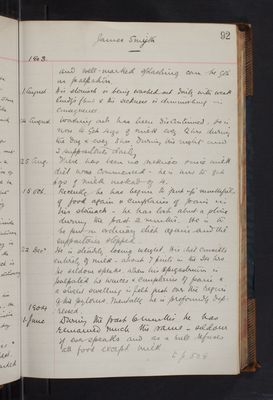 James Smyth
92
1903.
and well-marked splashing can be got
on palpation
1 August His stomach is being washed out daily with weak
Condy's fluid & his sickness is diminishing in
consequence
24 August Washing out has been discontinued. He is
now to get 4 ozs of milk every 2 hrs during
the day & every 3 hrs during the night and
suppositories daily
28 Aug. There has been no sickness since milk
diet was commenced - he is now to get
ozs of milk instead of 4.
18 Oct. Recently he has begun to
of food again & complains of pain in
his stomach - he has lost about
during the past 2 months. He is to
be put on ordinary diet again and the
suppositories stopped
22 Dec He is slowly losing weight. His diet consists
entirely of milk - about 7 pints in the 24 hrs
he seldom speaks. When his epigastrium is
palpated he winces & complains of pain &
a swelling is felt over the region
of the pylorus. Mentally he is profoundly dep-
ressed.
1904
1 June During the past 6 months he has
remained much the same - seldom
if ever speaks and as a rule refuses
all food except milk